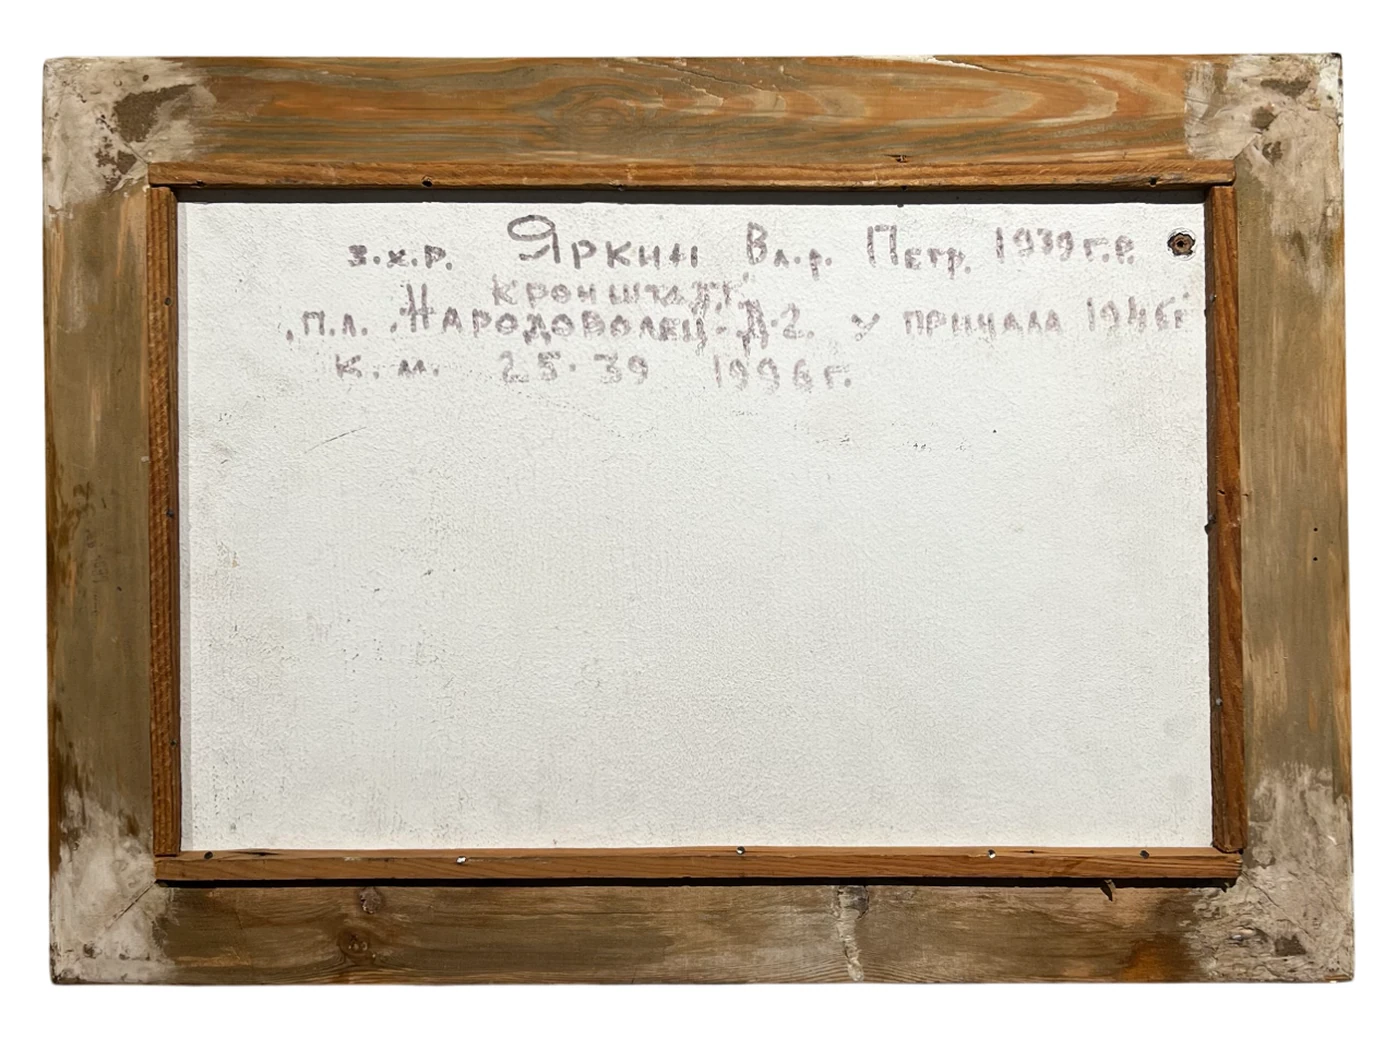 з.х.р. Яркин Вл.р. Петр. 1939г.р.
Кронштадт
п.л. "Народоволец"-Д-2. у причала 1946г
к.м. 25·39 1996г.